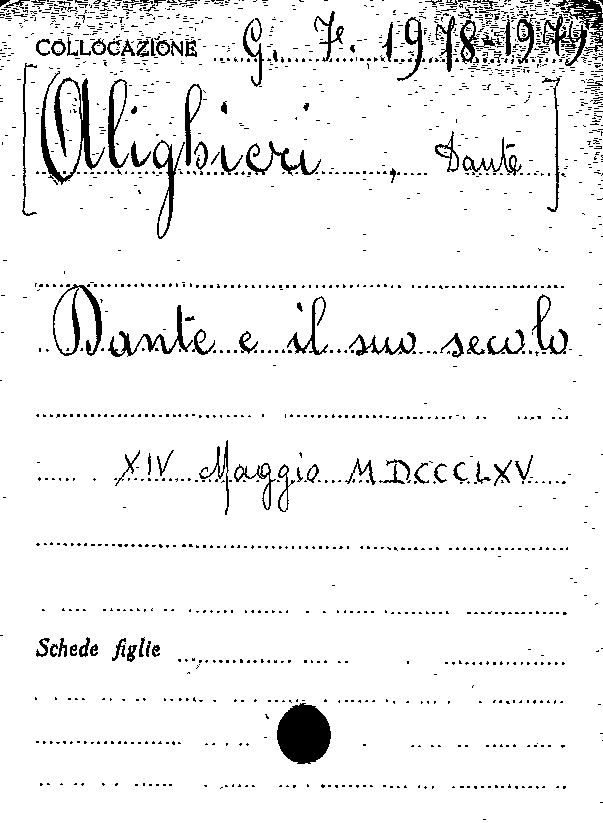 COLLOCAZIONE G. F. 1978-1979
[Alighieri, Dante]
Dante e il suo secolo
XIV Maggio MDCCCLXV
Schede figlie